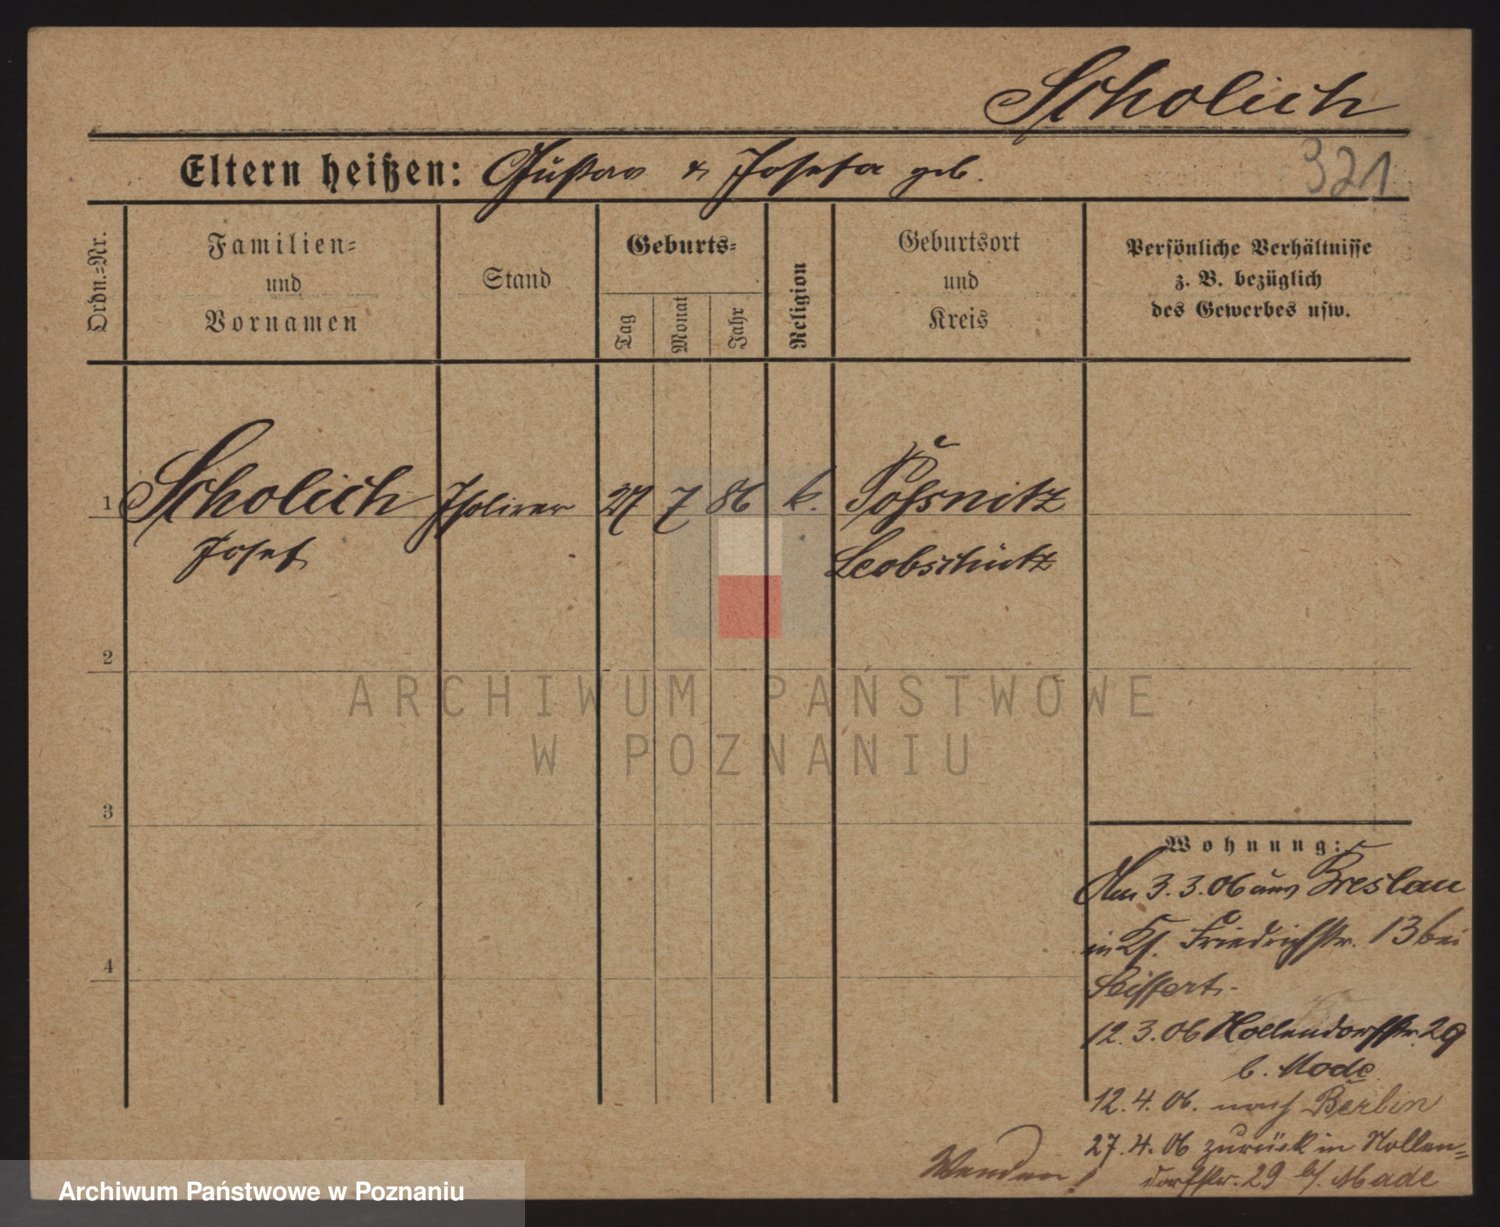 Scholich
Eltern heißen: Gustav & Josefa geb.
321
Ordn.=Nr.
Familien=
und
Vornamen
Stand
Geburts=
Tag
Monat
Jahr
Religion
Geburtsort
und
Kreis
Persönliche Verhältnisse
z. B. bezüglich
des Gewerbes usw.
1 Scholich Isolirer 27 7 86 k. Pössnitz
Josef Leobschütz
2
ARCHIWUM PAŃSTWOWE
W POZNANIU
3
Wohnung:
Am 3.3.06 aus Breslau
in Friedrichstr. 13 bei
Seiffert.
4
12.3.06 Hollendorffstr. 29
b. Made
12.4.06. nach Berlin
27.4.06 zurück in Hollen=
dorffstr. 29 b/. Made
Wenden!
Archiwum Państwowe w Poznaniu